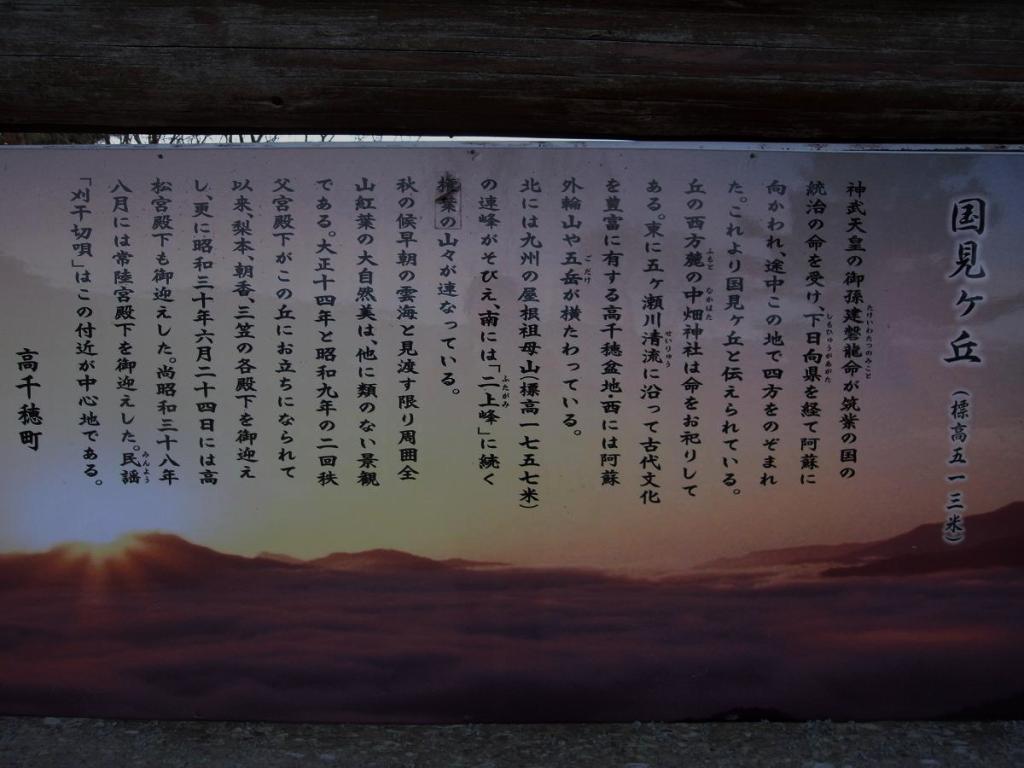 国見ヶ丘(標高五一三米)
神武天皇の御孫建磐龍命が筑紫の国の
統治の命を受け、下日向県を経て阿蘇に
向かわれ、途中この地で四方をのぞまれ
た。これより国見ヶ丘と伝えられている。
丘の西方麓の中畑神社は命をお祀りして
ある。東に五ヶ瀬川清流に沿って古代文化
を豊富に有する高千穂盆地・西には阿蘇
外輪山や五岳が横たわっている。
北には九州の屋根祖母山(標高一七五七米)
の連峰がそびえ、南には「二上峰」に続く
椎葉の山々が連なっている。
秋の候早朝の雲海と見渡す限り周囲全
山紅葉の大自然美は、他に類のない景観
である。大正十四年と昭和九年の二回秩
父宮殿下がこの丘にお立ちになられて
以来、梨本、朝香、三笠の各殿下を御迎え
し、更に昭和三十年六月二十四日には高
松宮殿下も御迎えした。尚昭和三十八年
八月には常陸宮殿下を御迎えした。民謡
「刈干切唄」はこの付近が中心地である。
高千穂町